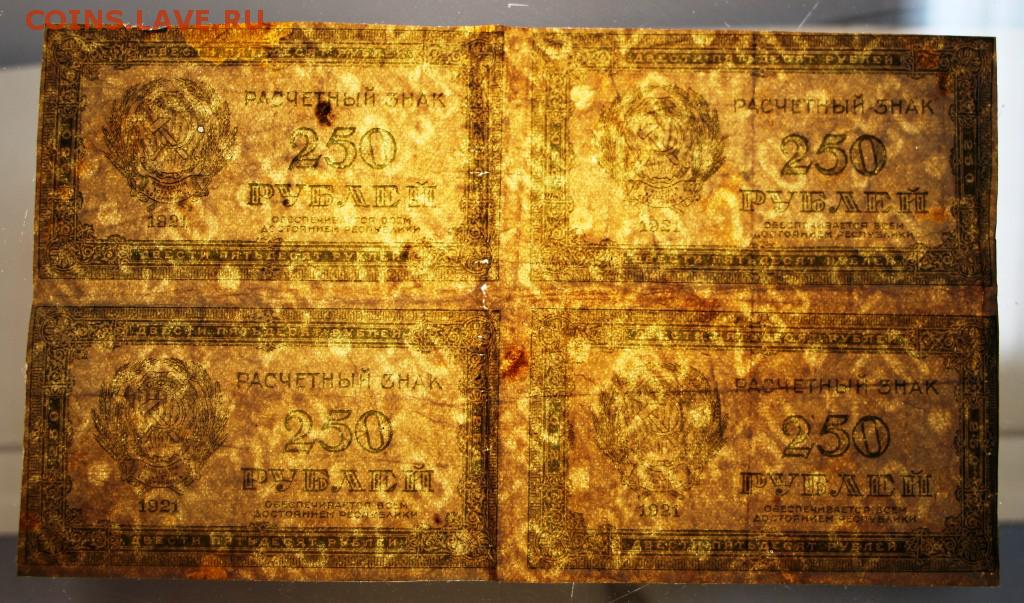 COINS.LAVE.RU
ДВЕСТИ ПЯТЬДЕСЯТ РУБЛЕЙ
РАСЧЕТНЫЙ ЗНАК
250
РУБЛЕЙ
1921
ОБЕСПЕЧИВАЕТСЯ ВСЕМ
ДОСТОЯНИЕМ РЕСПУБЛИКИ
ДВЕСТИ ПЯТЬДЕСЯТ РУБЛЕЙ
ДВЕСТИ ПЯТЬДЕСЯТ РУБЛЕЙ
РАСЧЕТНЫЙ ЗНАК
250
РУБЛЕЙ
1921
ОБЕСПЕЧИВАЕТСЯ ВСЕМ
ДОСТОЯНИЕМ РЕСПУБЛИКИ
ДВЕСТИ ПЯТЬДЕСЯТ РУБЛЕЙ
250
ДВЕСТИ ПЯТЬДЕСЯТ РУБЛЕЙ
РАСЧЕТНЫЙ ЗНАК
250
РУБЛЕЙ
1921
ОБЕСПЕЧИВАЕТСЯ ВСЕМ
ДОСТОЯНИЕМ РЕСПУБЛИКИ
ДВЕСТИ ПЯТЬДЕСЯТ РУБЛЕЙ
ДВЕСТИ ПЯТЬДЕСЯТ РУБЛЕЙ
РАСЧЕТНЫЙ ЗНАК
250
РУБЛЕЙ
1921
ОБЕСПЕЧИВАЕТСЯ ВСЕМ
ДОСТОЯНИЕМ РЕСПУБЛИКИ
ДВЕСТИ ПЯТЬДЕСЯТ РУБЛЕЙ